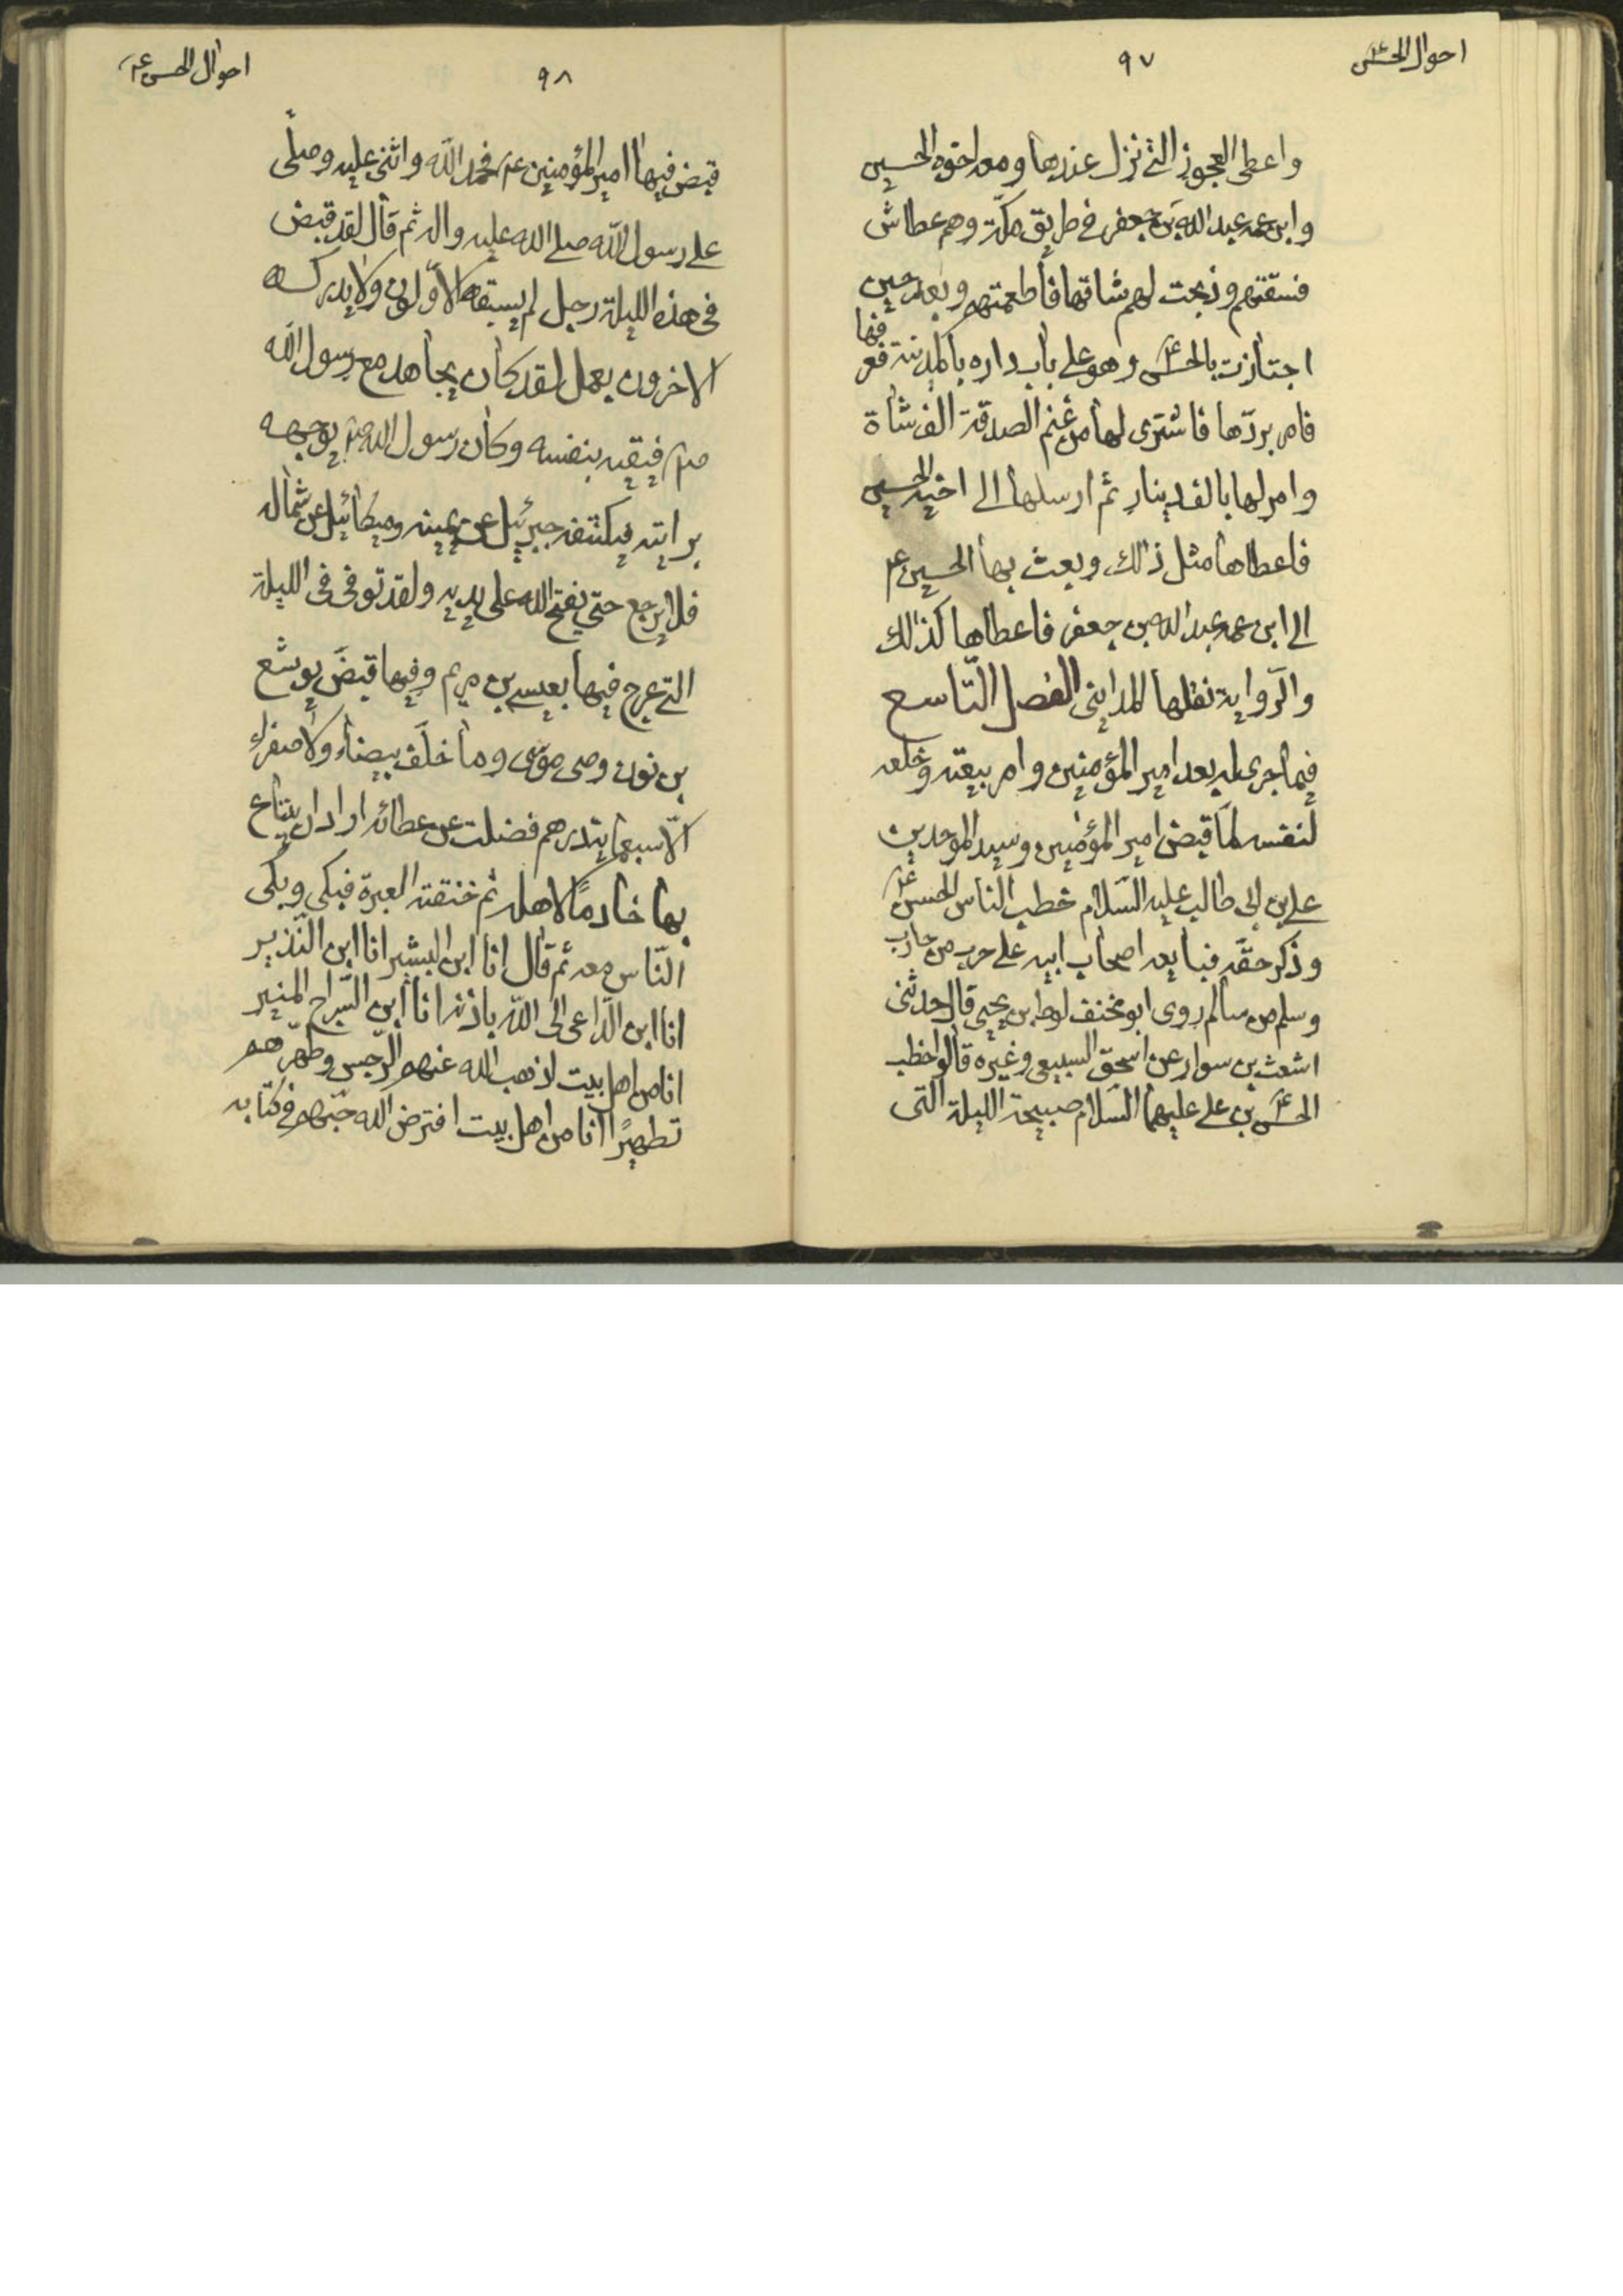 احوال الحسن ع
٩٧
واعطى العجوز التى نزل عندها ومعه اخوه الحسين
وابن عمه عبد الله بن جعفر فى طريق مكّة وهم عطاش
فسقتهم وذبحت لهم شاتها فاطعمتهم وبعد حين
اجتازت بالحسن ع وهو على باب داره بالمدينة فعرفها
فامر بردّها فاشترى لها من غنم الصدقة الف شاة
وامر لها بالف دينار ثم ارسلها الى اخيه الحسين
فاعطاها مثل ذالك وبعث بها الحسين ع
الى ابن عمه عبد الله بن جعفر فاعطاها كذالك
والرّواية نقلها المداينى الفصل التّاسع
فيما جرى له بعد امير المؤمنين وامر بيعته وخلعه
لنفسه لمّا قبض امير المؤمنين وسيد الموحدين
على بن ابى طالب عليه السّلام خطب النّاس الحسن ع
وذكر حقّه فبايعه اصحاب ابيه على حرب من حارب
وسلم من سالم روى ابو مخنف لوط ابن يحيى قال حدثنى
اشعث بن سوار عن اسحق السبيعى وغيره قالوا خطب
الحسن ع بن على عليهما السّلام صبيحة الليلة التى
احوال الحسن ع
٩٨
قبض فيها امير المؤمنين ع فحمد الله واثنى عليه وصلّى
على رسول الله صلى الله عليه واله ثم قال لقد قبض
فى هذه الليلة رجل لم يسبقه الاوّلون ولا يدركه
الاخرون بعمل لقد كان يجاهد مع رسول الله
ص فيقيه بنفسه وكان رسول الله ص يوجهه
برايته فيكتنفه جبرئيل عن يمينه وميكائيل عن شماله
فلا يرجع حتى يفتح الله على يديه ولقد توفى فى الليلة
التى عرج فيها بعيسى بن مريم وفيها قبض يوشع
بن نون وصى موسى وما خلّف بيضاء ولا صفراء
الّا سبعمايتدرهم فضلت عن عطائه اراد ان يبتاع
بها خادمًا لاهله ثم خنقته العبرة فبكى وبكى
النّاس معه ثم قال انا ابن البشير انا ابن النّذير
انا ابن الدّاعى الى الله باذنه انا ابن السّراج المنير
انا من اهل بيت اذهب الله عنهم الرّجس وطهّرهم
تطهيرًا انا من اهل بيت افترض الله حبّهم فى كتابه